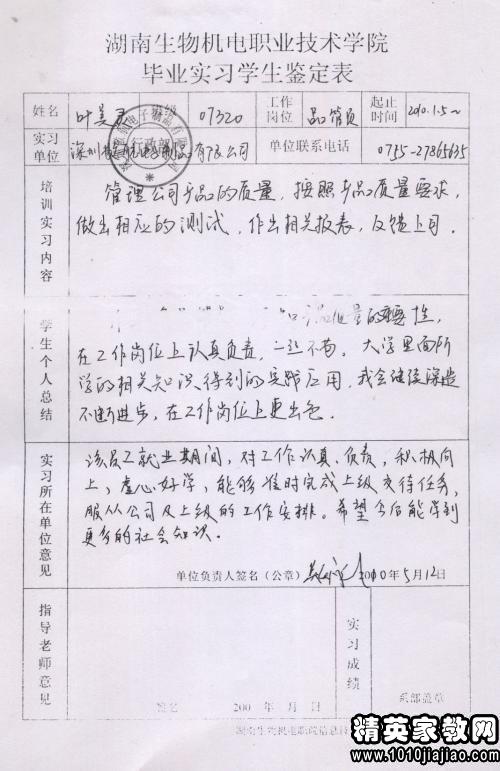 湖南生物机电职业技术学院
毕业实习学生鉴定表
姓名 叶美 班级 07320 工作岗位 品管员 起止时间 2010.1.5~
实习单位 深圳 有限公司 单位联系电话 0755-27865635
培训实习内容
管理公司产品的质量，按照产品质量要求，
做出相应的测试，作出相关报表，反馈上司。
学生个人总结
质量的重要性，
在工作岗位上认真负责，一丝不苟。大学里面所
学的相关知识得到的实践应用，我会继续深造
不断进步，在工作岗位上更出色。
实习所在单位意见
该员工就业期间，对工作认真、负责，积极向
上，虚心好学，能够准时完成上级交待任务，
服从公司及上级的工作安排。希望今后能学到
更多的社会知识。
单位负责人签名（公章） 2010年5月12日
指导老师意见
签名 200 年 月 日
实习成绩
系部盖章
湖南生物机电职院信息技
精英家教网
www.1010jiajiao.com